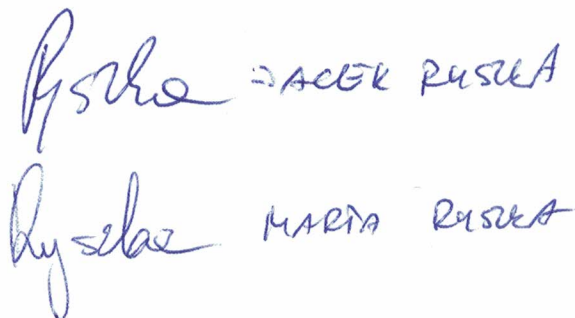 Ryszka JACEK RYSZKA
Ryszka MARTA RYSZKA